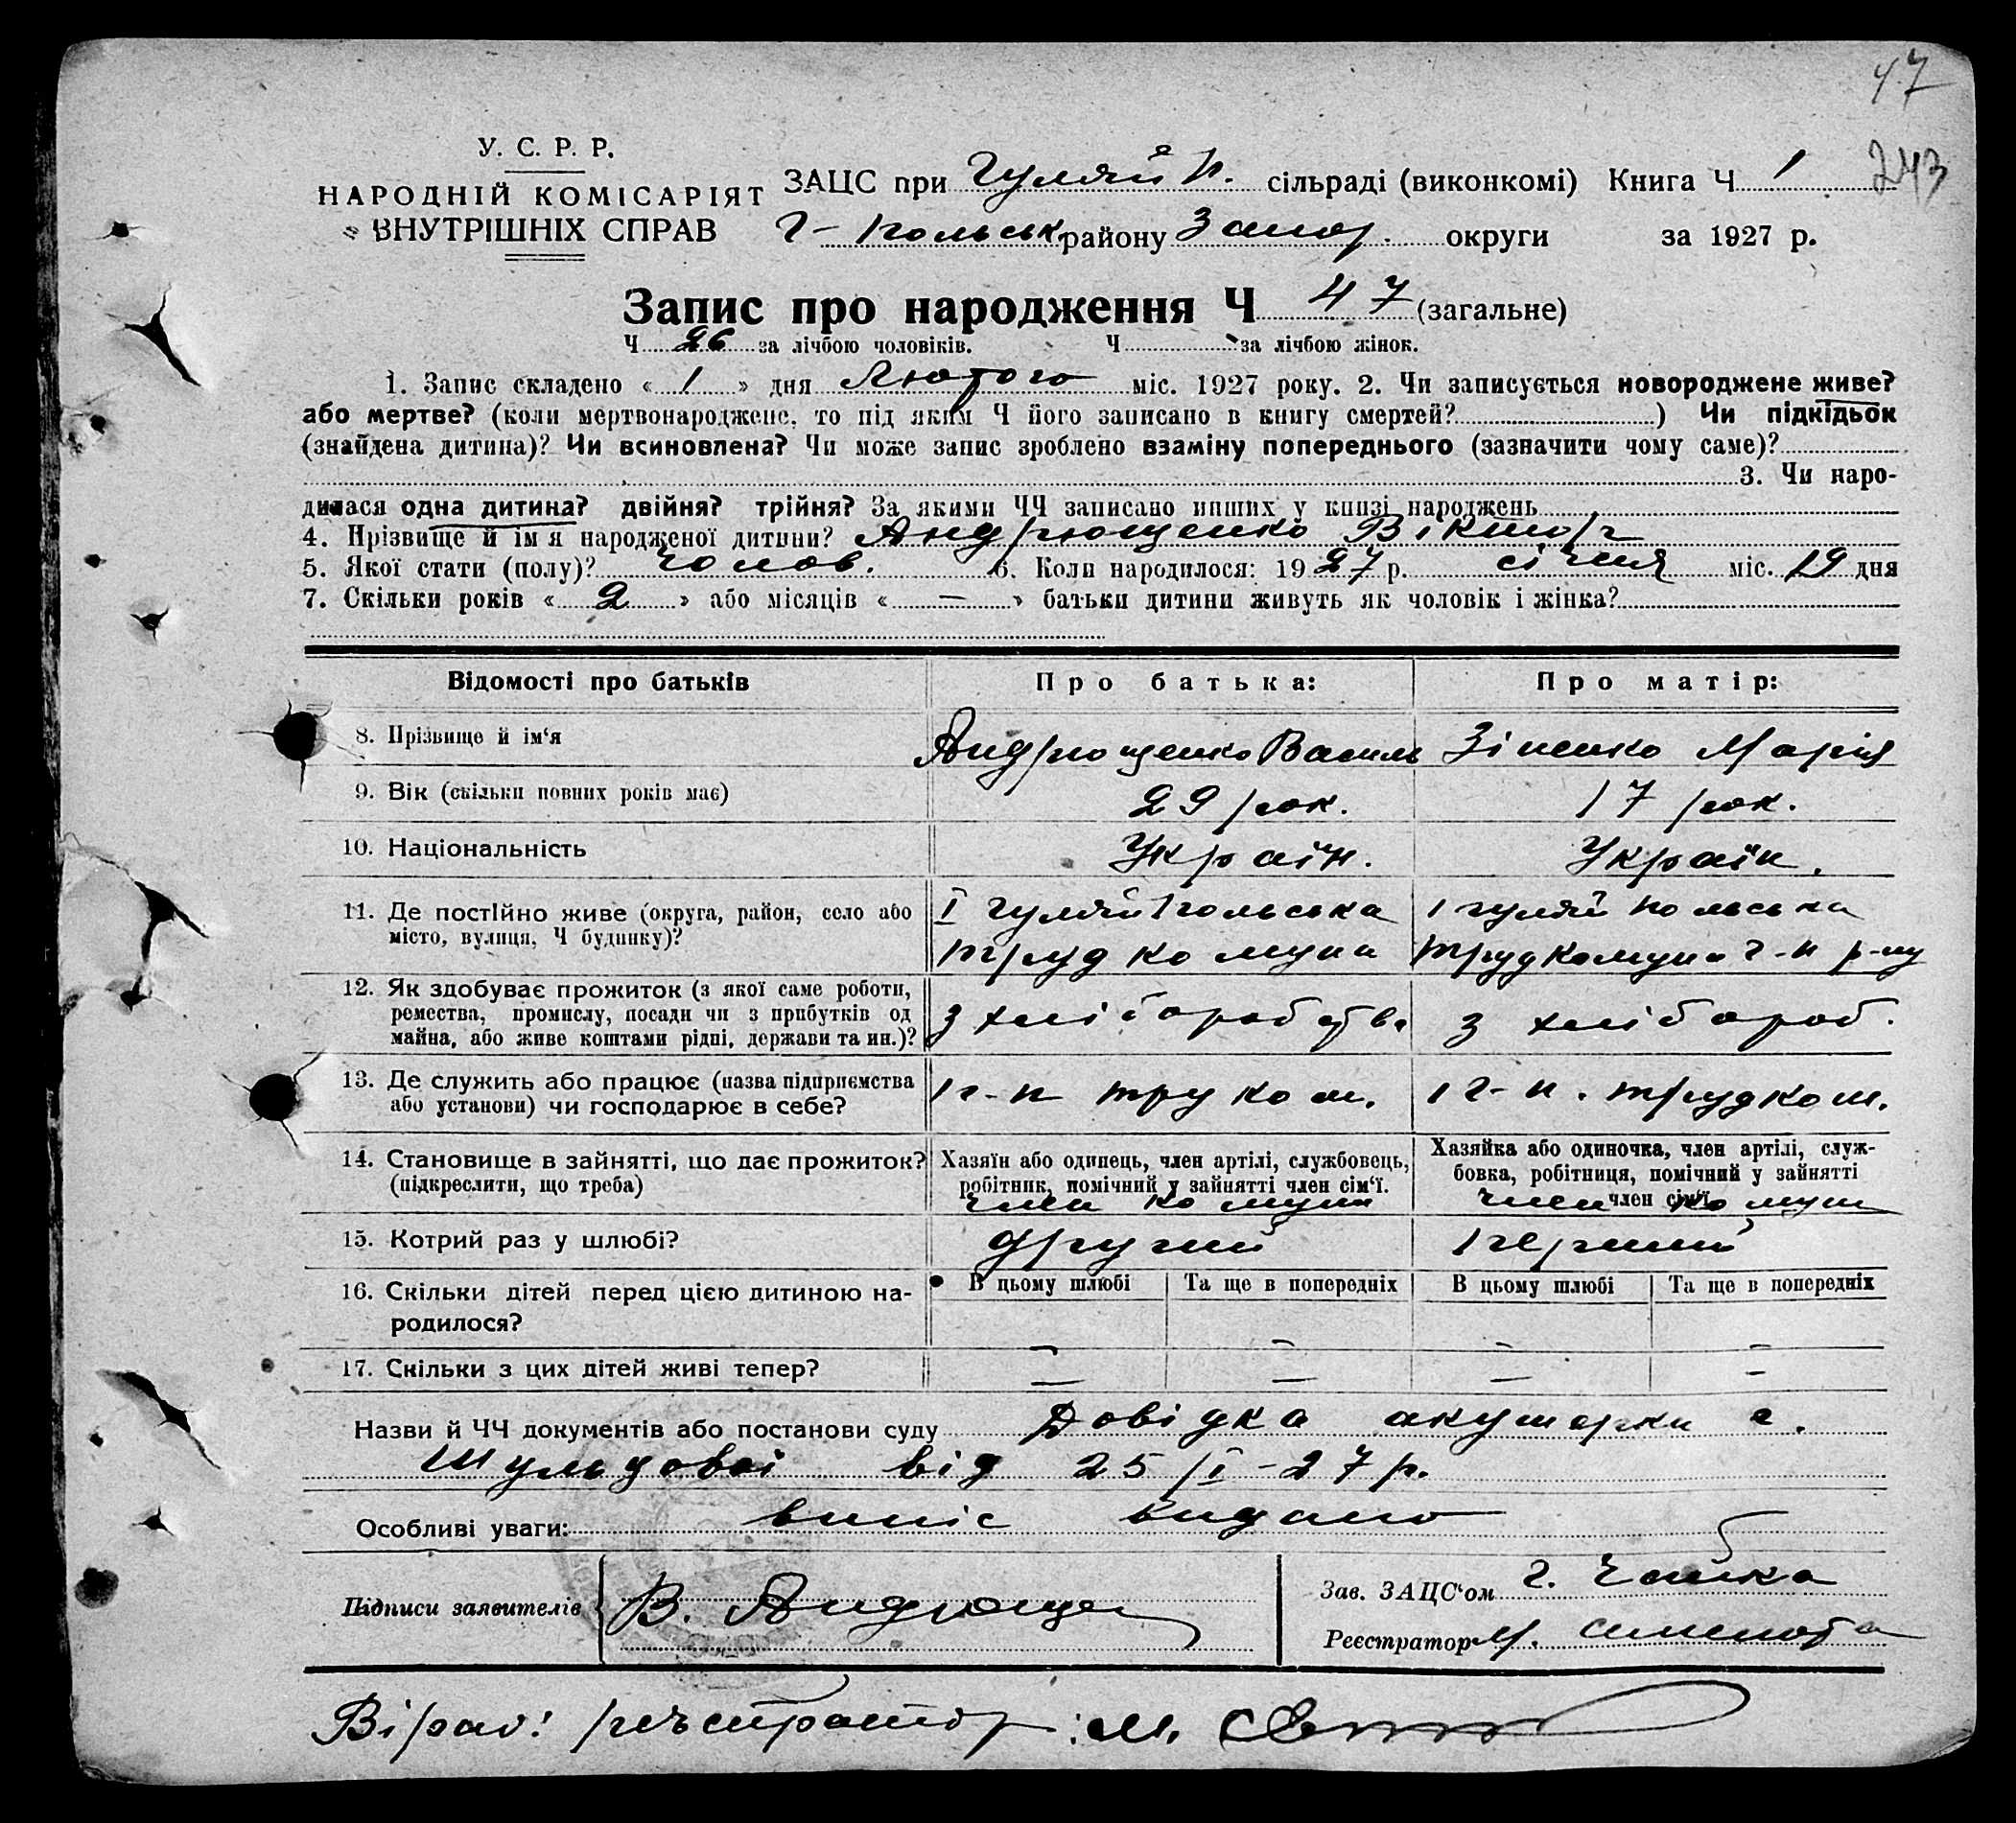 47
243
У. С. Р. Р.
НАРОДНІЙ КОМІСАРІЯТ
ВНУТРІШНІХ СПРАВ
ЗАЦС при Гуляй п. сільраді (виконкомі) Книга Ч 1
Г-польськ району Запор. округи за 1927 р.
Запис про народження Ч 47 (загальне)
Ч 26 за лічбою чоловіків. Ч за лічбою жінок.
1. Запис складено « 1 » дня Лютого міс. 1927 року. 2. Чи записується новороджене живе?
або мертве? (коли мертвонароджене, то під яким Ч його записано в книгу смертей? ) Чи підкідьок
(знайдена дитина)? Чи всиновлена? Чи може запис зроблено взаміну попереднього (зазначити чому саме)?
3. Чи наро-
дилася одна дитина? двійня? трійня? За якими ЧЧ записано инших у книзі народжень
4. Прізвище й ім'я народженої дитини? Андрющенко Віктор
5. Якої стати (полу)? Чолов. 6. Коли народилося: 1927 р. січня міс. 19 дня
7. Скільки років « 2 » або місяців « — » батьки дитини живуть як чоловік і жінка?
Відомості про батьків Про батька: Про матір:
8. Прізвище й ім'я Андрющенко Василь Зіненко Марія
9. Вік (скільки повних років має) 29 рок. 17 рок.
10. Національність Україн. Україн.
11. Де постійно живе (округа, район, село або І гуляйпольська 1 гуляй польська
місто, вулиця, Ч будинку)? трудкомуни трудкомуни г-п р-ну
12. Як здобуває прожиток (з якої саме роботи,
ремества, промислу, посади чи з прибутків од з хліборобств. з хлібороб.
майна, або живе коштами рідні, держави та ин.)?
13. Де служить або працює (назва підприємства 1 г-п трудком. 1 г-п. трудком.
або установи) чи господарює в себе?
14. Становище в зайнятті, що дає прожиток? Хазяїн або одинець, член артілі, службовець, Хазяйка або одиночка, член артілі, служ-
(підкреслити, що треба) робітник, помічний у зайнятті член сім'ї. бовка, робітниця, помічний у зайнятті
член сім'ї
член комуни член комуни
15. Котрий раз у шлюбі? другий перший
16. Скільки дітей перед цією дитиною на- В цьому шлюбі Та ще в попередніх В цьому шлюбі Та ще в попередніх
родилося? — — — —
17. Скільки з цих дітей живі тепер? — — — —
Назви й ЧЧ документів або постанови суду Довідка акушерки г.
від 25/І-27 р.
Особливі уваги: випис видано
Підписи заявителів В. Андрюще
Зав. ЗАЦС'ом Г. Чайка
Реєстратор М.
Вірно: реєстратор: М.